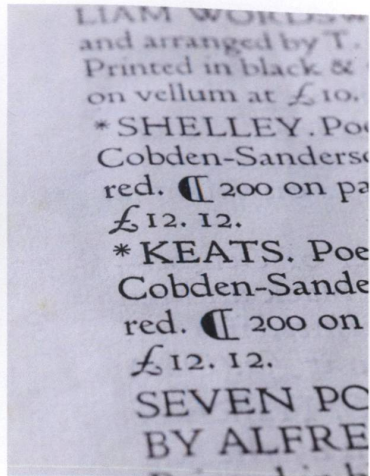 LIAM WORDSW
and arranged by T.
Printed in black &
on vellum at £10.
* SHELLEY. Poe
Cobden-Sanderso
red. ¶ 200 on pa
£12. 12.
* KEATS. Poe
Cobden-Sande
red. ¶ 200 on
£12. 12.
SEVEN PO
BY ALFRE